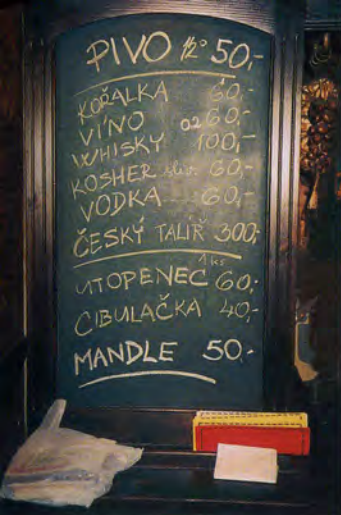 PIVO 12° 50,-
KOŘALKA 60,-
VÍNO 02 60,-
WHISKY 100,-
KOSHER sliv. 60,-
VODKA 60,-
ČESKÝ TALÍŘ 300,-
1 ks
UTOPENEC 60,-
CIBULAČKA 40,-
MANDLE 50,-